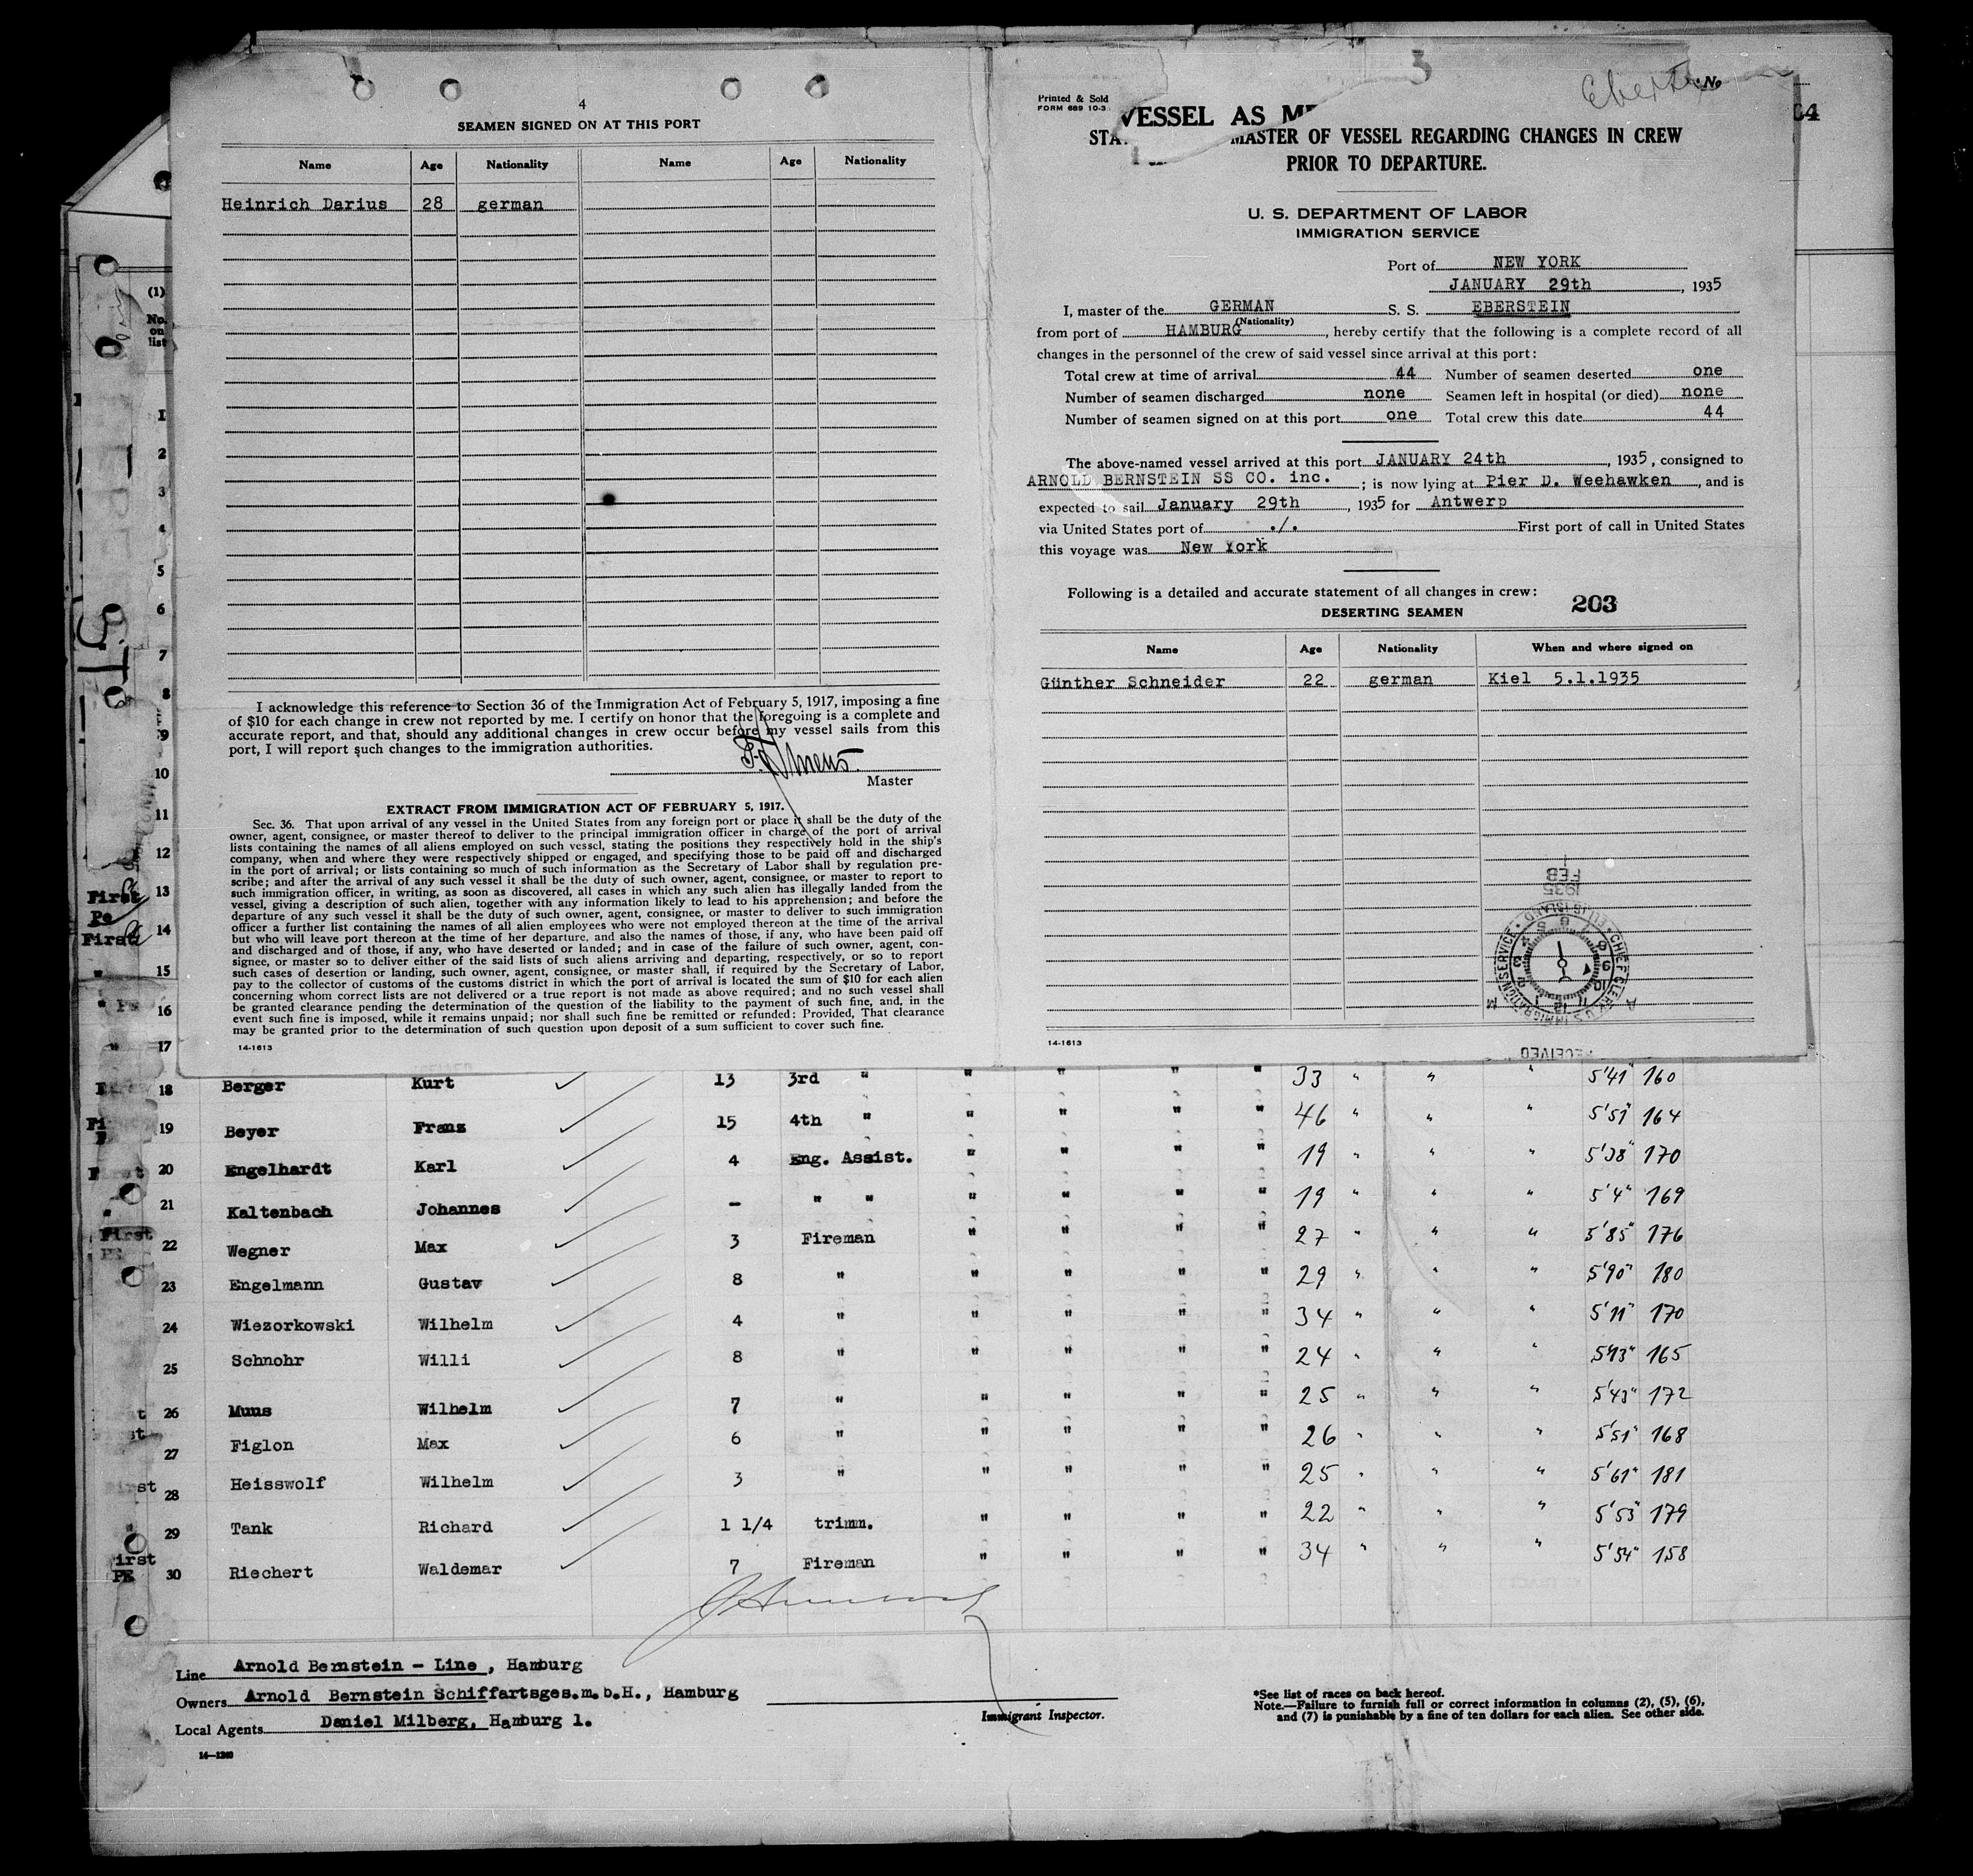 4
SEAMEN SIGNED ON AT THIS PORT
Name Age Nationality Name Age Nationality
Heinrich Darius 28 german
I acknowledge this reference to Section 36 of the Immigration Act of February 5, 1917, imposing a fine
of $10 for each change in crew not reported by me. I certify on honor that the foregoing is a complete and
accurate report, and that, should any additional changes in crew occur before my vessel sails from this
port, I will report such changes to the immigration authorities.
Master
EXTRACT FROM IMMIGRATION ACT OF FEBRUARY 5, 1917.
Sec. 36. That upon arrival of any vessel in the United States from any foreign port or place it shall be the duty of the
owner, agent, consignee, or master thereof to deliver to the principal immigration officer in charge of the port of arrival
lists containing the names of all aliens employed on such vessel, stating the positions they respectively hold in the ship's
company, when and where they were respectively shipped or engaged, and specifying those to be paid off and discharged
in the port of arrival; or lists containing so much of such information as the Secretary of Labor shall by regulation pre-
scribe; and after the arrival of any such vessel it shall be the duty of such owner, agent, consignee, or master to report to
such immigration officer, in writing, as soon as discovered, all cases in which any such alien has illegally landed from the
vessel, giving a description of such alien, together with any information likely to lead to his apprehension; and before the
departure of any such vessel it shall be the duty of such owner, agent, consignee, or master to deliver to such immigration
officer a further list containing the names of all alien employees who were not employed thereon at the time of the arrival
but who will leave port thereon at the time of her departure, and also the names of those, if any, who have been paid off
and discharged and of those, if any, who have deserted or landed; and in case of the failure of such owner, agent, con-
signee, or master so to deliver either of the said lists of such aliens arriving and departing, respectively, or so to report
such cases of desertion or landing, such owner, agent, consignee, or master shall, if required by the Secretary of Labor,
pay to the collector of customs of the customs district in which the port of arrival is located the sum of $10 for each alien
concerning whom correct lists are not delivered or a true report is not made as above required; and no such vessel shall
be granted clearance pending the determination of the question of the liability to the payment of such fine, and, in the
event such fine is imposed, while it remains unpaid; nor shall such fine be remitted or refunded: Provided, That clearance
may be granted prior to the determination of such question upon deposit of a sum sufficient to cover such fine.
14-1613
3
No
Printed & Sold
FORM 689 10-3
VESSEL AS
MASTER OF VESSEL REGARDING CHANGES IN CREW
PRIOR TO DEPARTURE.
U. S. DEPARTMENT OF LABOR
IMMIGRATION SERVICE
Port of NEW YORK
JANUARY 29th, 1935
I, master of the GERMAN S. S. EBERSTEIN
(Nationality)
from port of HAMBURG, hereby certify that the following is a complete record of all
changes in the personnel of the crew of said vessel since arrival at this port:
Total crew at time of arrival 44 Number of seamen deserted one
Number of seamen discharged none Seamen left in hospital (or died) none
Number of seamen signed on at this port one Total crew this date 44
The above-named vessel arrived at this port JANUARY 24th, 1935, consigned to
ARNOLD BERNSTEIN SS CO. inc.; is now lying at Pier D. Weehawken, and is
expected to sail January 29th, 1935 for Antwerp
via United States port of ./. First port of call in United States
this voyage was New York
Following is a detailed and accurate statement of all changes in crew:
203
DESERTING SEAMEN
Name Age Nationality When and where signed on
Günther Schneider 22 german Kiel 5.1.1935
FEB
1935
RECEIVED
14-1613
(1)
No.
on
list
1
2
3
4
5
6
7
8
9
10
11
12
First 13
First 14
" 15
" 16
" 17
18 Berger Kurt 13 3rd " " " " " 33 " " " 5'41" 160
19 Beyer Franz 15 4th " " " " " 46 " " " 5'51" 164
20 Engelhardt Karl 4 Eng. Assist. " " " " 19 " " " 5'38" 170
21 Kaltenbach Johannes - " " " " " " 19 " " " 5'4" 169
22 Wegner Max 3 Fireman " " " " 27 " " " 5'85" 176
23 Engelmann Gustav 8 " " " " " 29 " " " 5'90" 180
24 Wiezorkowski Wilhelm 4 " " " " " 34 " " " 5'11" 170
25 Schnohr Willi 8 " " " " " 24 " " " 165
26 Muus Wilhelm 7 " " " " " 25 " " " 5'43" 172
27 Figlon Max 6 " " " " " 26 " " " 5'51" 168
28 Heisswolf Wilhelm 3 " " " " " 25 " " " 5'61" 181
29 Tank Richard 1 1/4 trimm. " " " " 22 " " " 5'53" 179
30 Riechert Waldemar 7 Fireman " " " " 34 " " " 5'54" 158
Line Arnold Bernstein - Line, Hamburg
Owners Arnold Bernstein Schiffartsges.m.b.H., Hamburg
Local Agents Daniel Milberg, Hamburg 1.
14-1240
Immigrant Inspector.
*See list of races on back hereof.
Note.—Failure to furnish full or correct information in columns (2), (5), (6),
and (7) is punishable by a fine of ten dollars for each alien. See other side.